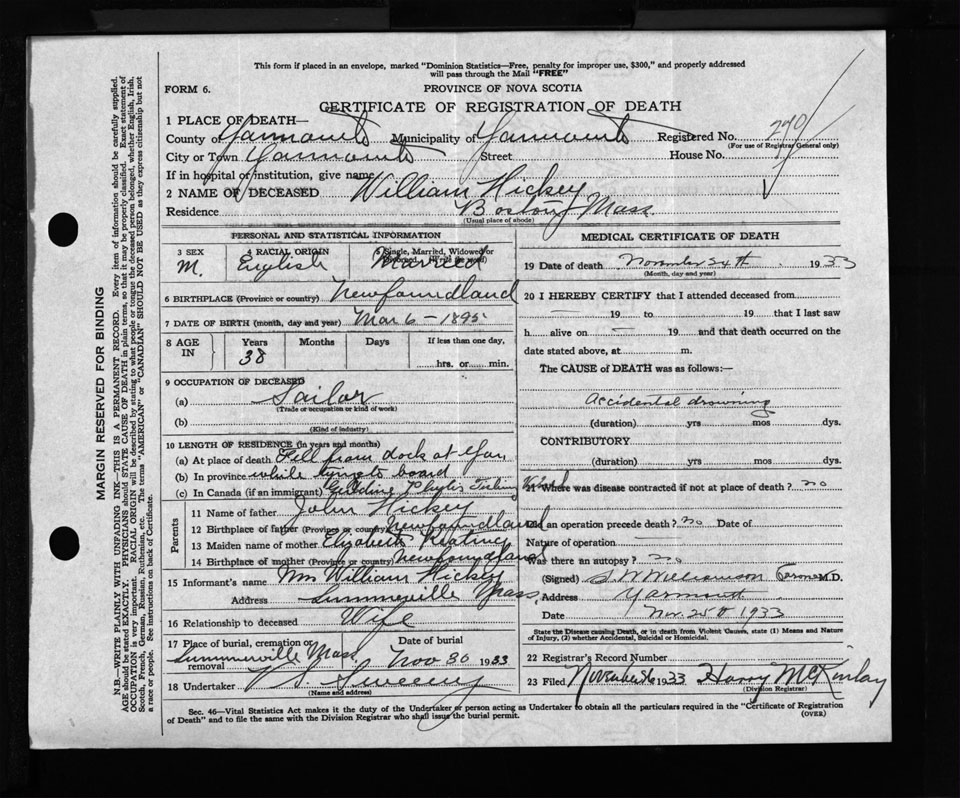 This form if placed in an envelope, marked "Dominion Statistics—Free, penalty for improper use, $300," and properly addressed
will pass through the Mail "FREE"
FORM 6.
PROVINCE OF NOVA SCOTIA
CERTIFICATE OF REGISTRATION OF DEATH
1 PLACE OF DEATH—
County of Yarmouth Municipality of Yarmouth Registered No. 270
(For use of Registrar General only)
City or Town Yarmouth Street House No.
If in hospital or institution, give name
2 NAME OF DECEASED William Hickey
Residence Boston Mass
(Usual place of abode)
PERSONAL AND STATISTICAL INFORMATION
3 SEX 4 RACIAL ORIGIN 5 Single, Married, Widowed or
Divorced (Write the word)
M. English Married
6 BIRTHPLACE (Province or country) Newfoundland
7 DATE OF BIRTH (month, day and year) Mar 6 – 1895
8 AGE IN Years Months Days If less than one day,
38 hrs. or min.
9 OCCUPATION OF DECEASED
(a) Sailor
(Trade or occupation or kind of work)
(b)
(Kind of industry)
10 LENGTH OF RESIDENCE (in years and months)
(a) At place of death Fell from dock at Yar
(b) In province while trying to board
(c) In Canada (if an immigrant)
Parents
11 Name of father John Hickey
12 Birthplace of father (Province or country) Newfoundland
13 Maiden name of mother Elizabeth Keating
14 Birthplace of mother (Province or country) Newfoundland
15 Informant's name Mrs William Hickey
Address Summerville Mass
16 Relationship to deceased Wife
17 Place of burial, cremation or removal Date of burial
Summerville Mass Nov 30 1933
18 Undertaker V. S. Sweeny
(Name and address)
MEDICAL CERTIFICATE OF DEATH
19 Date of death November 24th 1933
(Month, day and year)
20 I HEREBY CERTIFY that I attended deceased from
— 19 to 19 that I last saw
h alive on — 19 and that death occurred on the
date stated above, at m.
The CAUSE of DEATH was as follows:—
Accidental drowning
(duration) yrs mos dys.
CONTRIBUTORY
(duration) yrs mos dys.
21 Where was disease contracted if not at place of death? no
Did an operation precede death? no Date of
Nature of operation —
Was there an autopsy? no
(Signed) S. W. Williamson M.D.
Address Yarmouth
Date Nov. 25th 1933
State the Disease causing Death, or in death from Violent Causes, state (1) Means and Nature
of Injury, (2) whether Accidental, Suicidal or Homicidal.
22 Registrar's Record Number
23 Filed November 26 1933 Harry McKinlay
(Division Registrar)
Sec. 46—Vital Statistics Act makes it the duty of the Undertaker or person acting as Undertaker to obtain all the particulars required in the "Certificate of Registration
of Death" and to file the same with the Division Registrar who shall issue the burial permit.
(OVER)
MARGIN RESERVED FOR BINDING
N.B.—WRITE PLAINLY WITH UNFADING INK—THIS IS A PERMANENT RECORD. Every item of information should be carefully supplied.
AGE should be stated EXACTLY. PHYSICIANS should STATE CAUSE OF DEATH in plain terms, so that it may be properly classified. Exact statement of
OCCUPATION is very important. RACIAL ORIGIN will be described by stating to what people or tongue the deceased person belonged, whether English, Irish,
Scotch, French, German, Russian, Ruthenian, etc. The terms "AMERICAN" or "CANADIAN" SHOULD NOT BE USED as they express citizenship but not
a race or people. See instructions on back of Certificate.